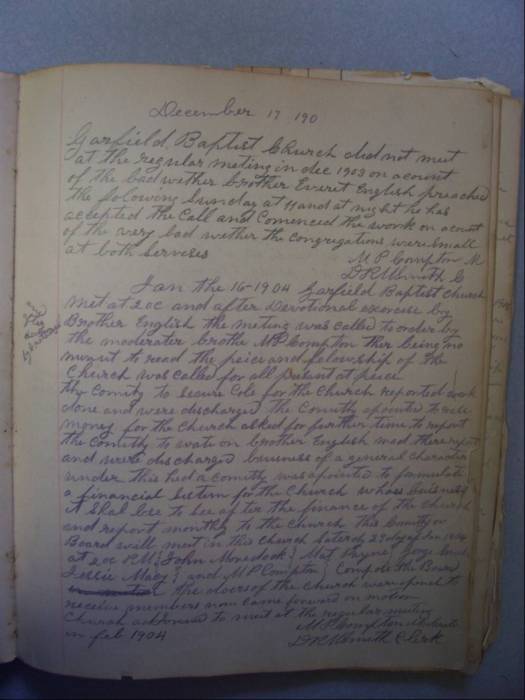 December 17 190
Garfield Baptist Church did not meet
at the regular meting in dec 1903 on acount
of the bad wether brother Everet English preached
the folowing Sunday at 11 and at night he has
acepted the Call and Comenced the work on acount
of the very bad wether the congregations were small
at both servises
M P Compton M
D R C
Jan the 16-1904 Garfield Baptist Church
met at 2 oc and after Devotional exercise by
Brother English the meting was called to order by
the moderater brothe M P Compton ther being no
minuit to read the peice and felowship of the
Church was called for all present at peice
the comity to secure Cole for the Church reported work
done and were discharged the Comitty apointed to
money for the Church asked for further time to report
the comitty to wate on brother English mad there report
and were discharged buisness of a general character
under this hed a comitty was apointed to formulate
a financial sistem for the Church whos buisness
it shal bee to see after the finance of the church
and report monthly to the church this comitty or
Board will meet in this church Saterdy 23 day of Jan 1904
at 2 oc P.M. John Mat Payne
Leslie Macy and M P Compton Compose the Board
the doors of the Church were opened to
receive members non came forward on motion
Church ajorned to meet at the regular meeting
in feb 1904
M P Compton
D R Clerk